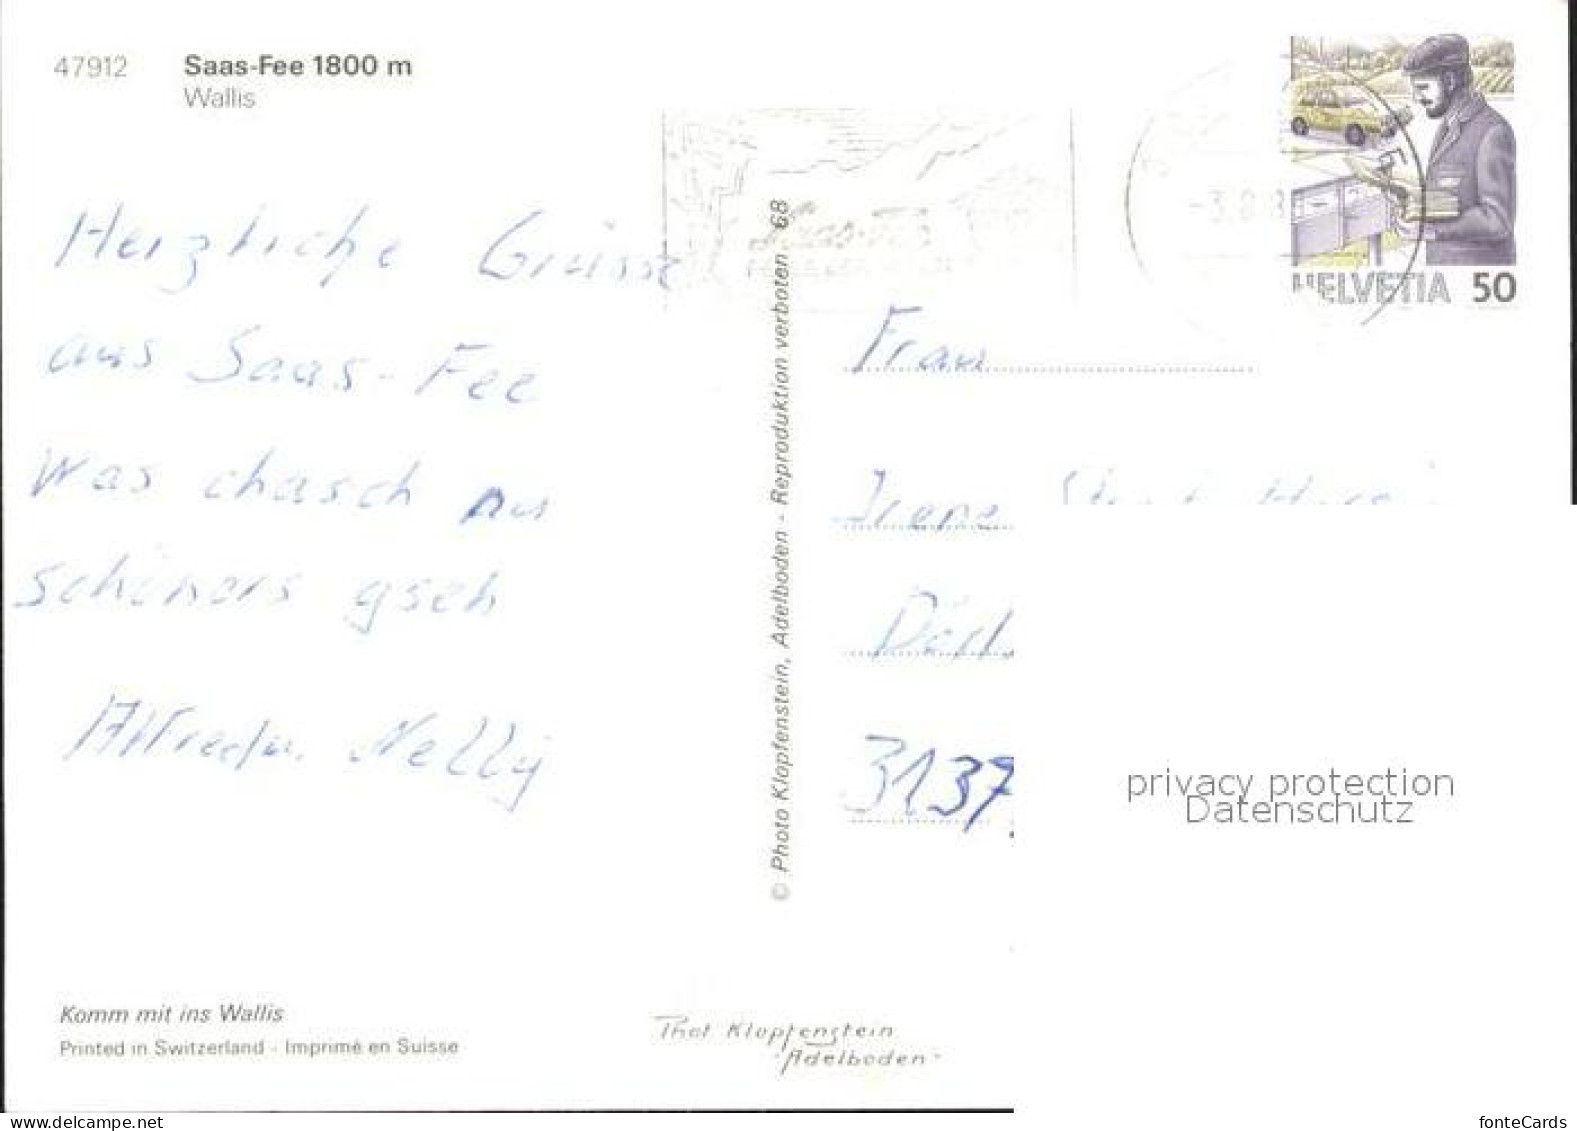 47912 Saas-Fee 1800 m
Wallis
Herzliche Grüsse
aus Saas-Fee
Was chasch
schöners gseh
Nelly
© Photo Klopfenstein, Adelboden - Reproduktion verboten 68
HELVETIA 50
Frau
Irene
3137
privacy protection
Datenschutz
Komm mit ins Wallis
Printed in Switzerland - Imprimé en Suisse
Phot Klopfenstein
-Adelboden-
www.delcampe.net
fonteCards